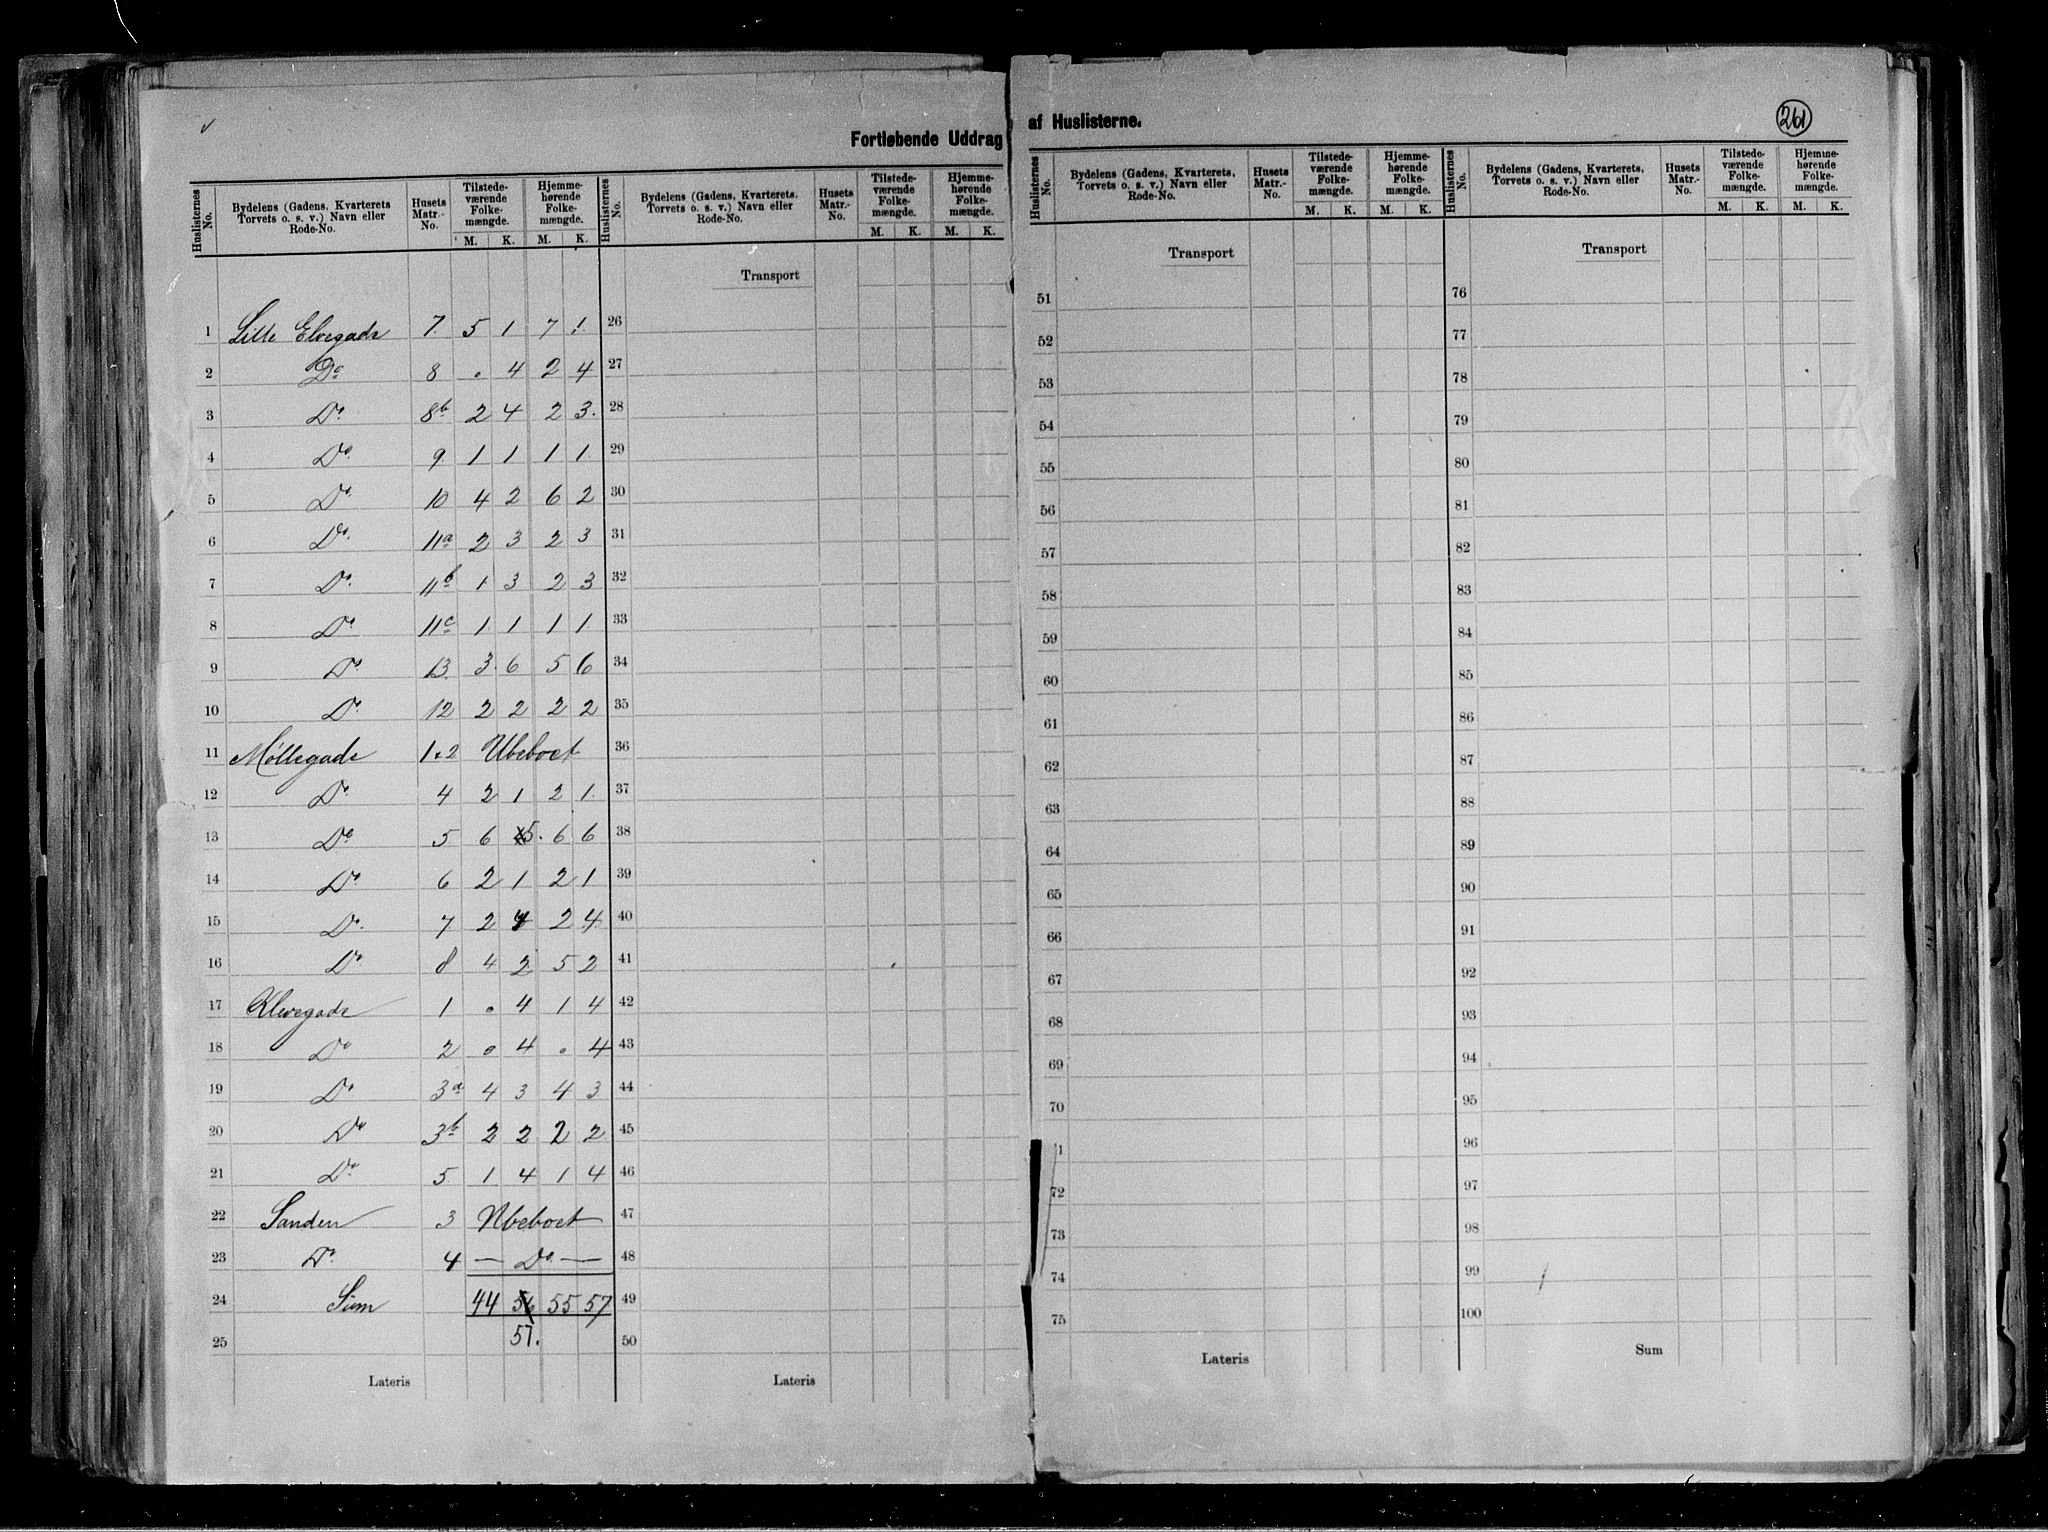 Fortløbende Uddrag af Huslisterne.
261
Huslisternes No. | Bydelens (Gadens, Kvarterets Torvets o. s. v.) Navn eller Rode-No. | Husets Matr.-No. | Tilstede-værende Folke-mængde. M. K. | Hjemme-hørende Folke-mængde. M. K.
1 Lille Elvegade 7. 5 1 7 1.
2 Do 8 . 4 2 4
3 Do 8b 2 4 2 3.
4 Do. 9 1 1 1 1
5 Do. 10 4 2 6 2
6 Do. 11a 2 3 2 3
7 Do. 11b 1 3 2 3
8 Do 11c 1 1 1 1
9 Do 13. 3. 6 5 6
10 Do. 12 2 2 2 2
11 Møllegade 1.2 Ubeboet
12 Do. 4 2 1 2 1.
13 Do. 5. 6 5. 6 6
14 Do 6 2 1 2 1
15 Do. 7 2 4 2 4
16 Do 8 4 2 5 2
17 Klevegade 1 . 4 1 4
18 Do 2 . 4 . 4
19 Do 3a 4 3 4 3
20 Do 3b 2 2 2 2
21 Do 5. 1 4 1 4
22 Sanden 3 Ubeboet
23 Do. 4 — Do. —
24 Sum 44 56 55 57
25 57.
Lateris
Huslisternes No. | Bydelens (Gadens, Kvarterets. Torvets o. s. v.) Navn eller Rode-No. | Husets Matr.-No. | Tilstede-værende Folke-mængde. M. K. | Hjemme-hørende Folke-mængde. M. K.
Transport
26
27
28
29
30
31
32
33
34
35
36
37
38
39
40
41
42
43
44
45
46
47
48
49
50
Lateris
Huslisternes No. | Bydelens (Gadens, Kvarterets, Torvets o. s. v.) Navn eller Rode-No. | Husets Matr.-No. | Tilstede-værende Folke-mængde. M. K. | Hjemme-hørende Folke-mængde. M. K.
Transport
51
52
53
54
55
56
57
58
59
60
61
62
63
64
65
66
67
68
69
70
1
72
73
74
75
Lateris
Huslisternes No. | Bydelens (Gadens, Kvarterets, Torvets o. s. v.) Navn eller Rode-No. | Husets Matr.-No. | Tilstede-værende Folke-mængde. M. K. | Hjemme-hørende Folke-mængde. M. K.
Transport
76
77
78
79
80
81
82
83
84
85
86
87
88
89
90
91
92
93
94
95
96
97
98
99
100
Sum